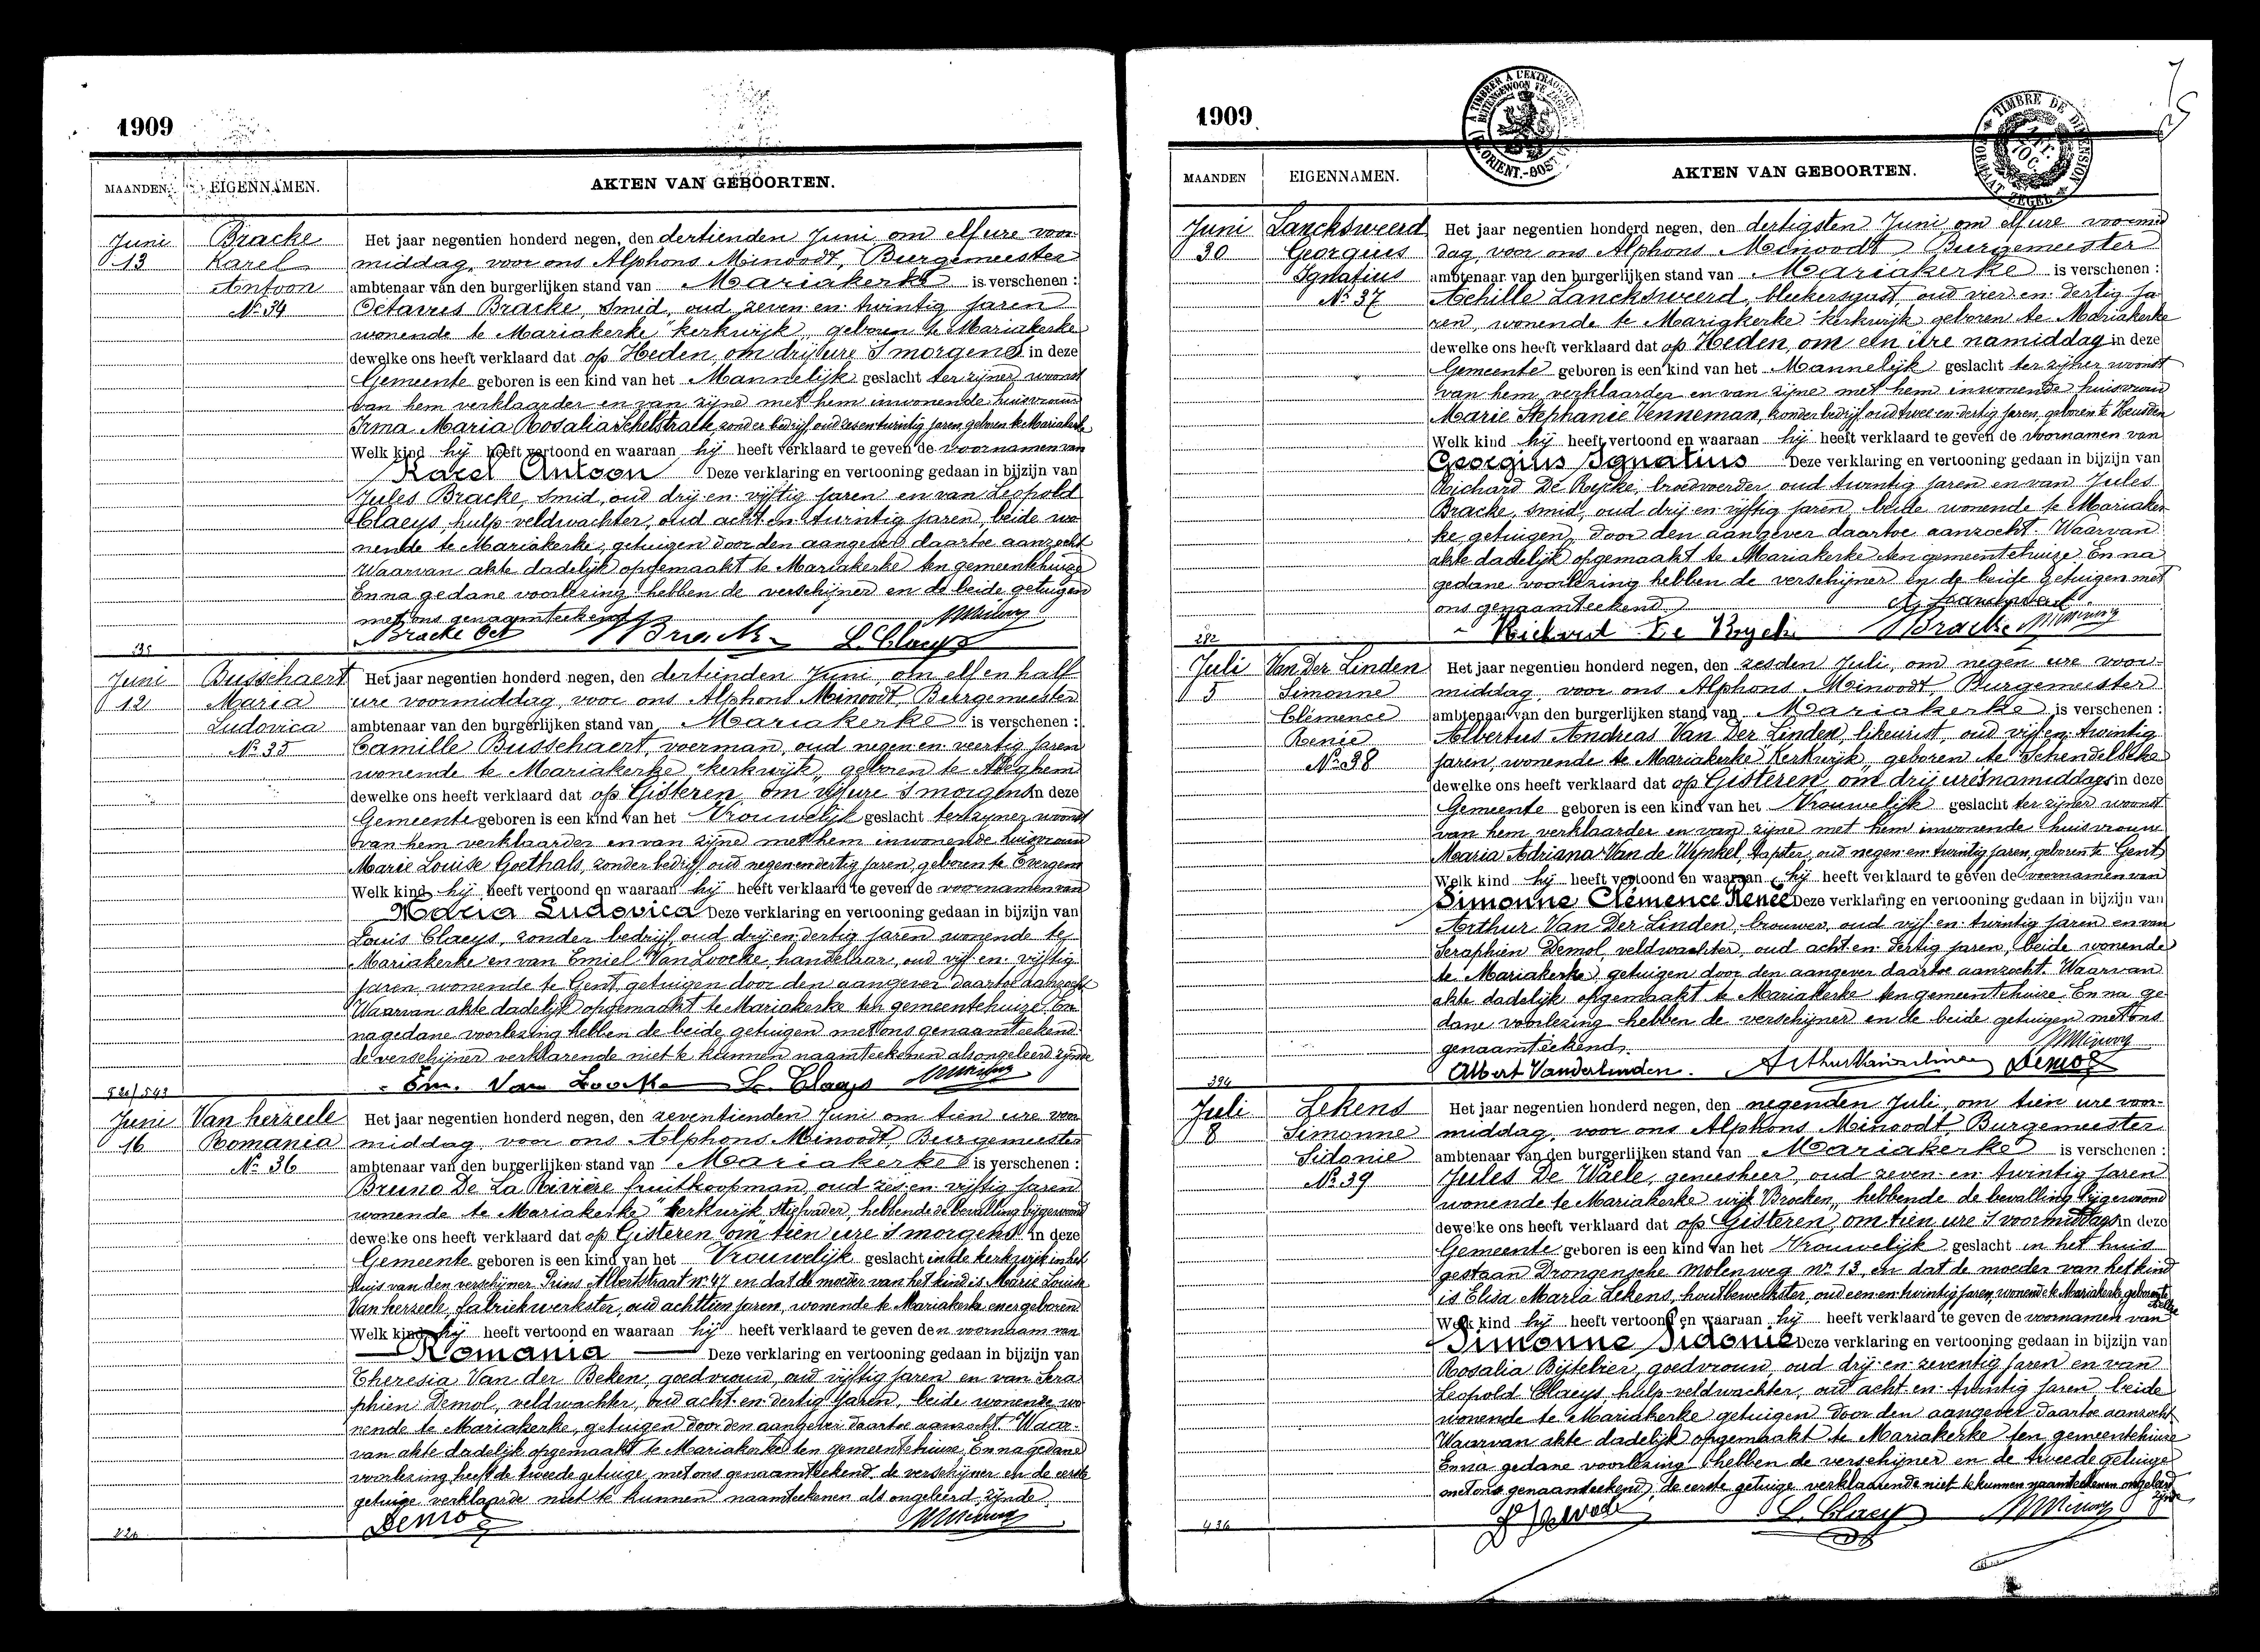 1909
MAANDEN. EIGENNAMEN. AKTEN VAN GEBOORTEN.
Juni 13
Bracke Karel Antoon
No 34
Het jaar negentien honderd negen, den dertienden Juni om elf ure voor-
middag, voor ons Alphons Minoodt, Burgemeester
ambtenaar van den burgerlijken stand van Mariakerke is verschenen :
Octavus Bracke, smid, oud zeven en twintig jaren
wonende te Mariakerke "kerkwijk" geboren te Mariakerke
dewelke ons heeft verklaard dat op Heden, om drij ure 's morgens in deze
Gemeente geboren is een kind van het Mannelijk geslacht ter zijner woonst
van hem verklaarder en van zijne met hem inwonende huisvrouw
Irma Maria Rosalia Schelstraete, zonder bedrijf, oud zes en twintig jaren, geboren te Mariakerke
Welk kind hij heeft vertoond en waaraan hij heeft verklaard te geven de voornamen van
Karel Antoon Deze verklaring en vertooning gedaan in bijzijn van
Jules Bracke, smid, oud drij en vijftig jaren en van Leopold
Claeys, hulp veldwachter, oud acht en twintig jaren, beide wo-
nende te Mariakerke, getuigen door den aangever daartoe aanzocht
Waarvan akte dadelijk opgemaakt te Mariakerke ten gemeentehuize
En na gedane voorlezing hebben de verschijner en de beide getuigen
met ons genaamteekend
Bracke Oct JBracke L. Claeys
Juni 12
Busschaert Maria Ludovica
No 35
Het jaar negentien honderd negen, den dertienden Juni, om elf en half
ure voormiddag, voor ons Alphons Minoodt, Burgemeester
ambtenaar van den burgerlijken stand van Mariakerke is verschenen :
Camille Busschaert, voerman, oud negen en veertig jaren
wonende te Mariakerke "kerkwijk" geboren te
dewelke ons heeft verklaard dat op Gisteren om vijf ure 's morgens in deze
Gemeente geboren is een kind van het Vrouwelijk geslacht ter zijner woonst
van hem verklaarder en van zijne met hem inwonende huisvrouw
Marie Louise Goethals, zonder bedrijf, oud negen en dertig jaren, geboren te Evergem
Welk kind hij heeft vertoond en waaraan hij heeft verklaard te geven de voornamen van
Maria Ludovica Deze verklaring en vertooning gedaan in bijzijn van
Louis Claeys, zonder bedrijf, oud drij en dertig jaren wonende te
Mariakerke en van Emiel Van Loocke, handelaar, oud vijf en vijftig
jaren wonende te Gent, getuigen door den aangever daartoe aanzocht
Waarvan akte dadelijk opgemaakt te Mariakerke ten gemeentehuize En
na gedane voorlezing hebben de beide getuigen met ons genaamteekend
de verschijner verklarende niet te kunnen naamteekenen als ongeleerd zijnde
Em. Van Loocke L. Claeys
Juni 16
Van herzeele Romania
No 36
Het jaar negentien honderd negen, den zeventienden Juni om tien ure voor
middag voor ons Alphons Minoodt, Burgemeester
ambtenaar van den burgerlijken stand van Mariakerke is verschenen :
Bruno De La Rivière fruitkoopman, oud zes en vijftig jaren
wonende te Mariakerke "Kerkwijk" stiefvader, hebbende de bevalling bijgewoond
dewelke ons heeft verklaard dat op Gisteren om tien ure 's morgens in deze
Gemeente geboren is een kind van het Vrouwelijk geslacht in de kerkwijk in het
huis van den verschijner Prins Albertstraat no 47 en dat de moeder van het kind is Marie Louise
Van herzeele, fabriekwerkster, oud achttien jaren, wonende te Mariakerke en er geboren
Welk kind hij heeft vertoond en waaraan hij heeft verklaard te geven den voornaam van
Romania Deze verklaring en vertooning gedaan in bijzijn van
Theresia Van der Beken, goedvrouw, oud vijftig jaren en van Sera
phien Demol, veldwachter, oud acht en dertig jaren, beide wonende wo-
nende te Mariakerke, getuigen door den aangever daartoe aanzocht. Waar-
van akte dadelijk opgemaakt te Mariakerke ten gemeentehuize. En na gedane
voorlezing heeft de tweede getuige met ons genaamteekend de verschijner en de eerste
getuige verklaarde niet te kunnen naamteekenen als ongeleerd zijnde
Demol
1909
MAANDEN EIGENNAMEN. AKTEN VAN GEBOORTEN.
Juni 30
Lancksweerd Georgius Ignatius
No 37
Het jaar negentien honderd negen, den dertigsten Juni om elf ure voormid
dag, voor ons Alphons Minoodt Burgemeester
ambtenaar van den burgerlijken stand van Mariakerke is verschenen :
Achille Lancksweerd, bleekersgast, oud vier en dertig ja
ren, wonende te Mariakerke "kerkwijk" geboren te Mariakerke
dewelke ons heeft verklaard dat op Heden, om één ure namiddag in deze
Gemeente geboren is een kind van het Mannelijk geslacht ter zijner woonst
van hem verklaarder en van zijne met hem inwonende huisvrouw
Marie Stephanie Venneman, zonder bedrijf, oud twee en dertig jaren, geboren te Heusden
Welk kind hij heeft vertoond en waaraan hij heeft verklaard te geven de voornamen van
Georgius Ignatius Deze verklaring en vertooning gedaan in bijzijn van
Richard De Rycke, broodvoerder oud twintig jaren en van Jules
Bracke, smid, oud drij en vijftig jaren, beide wonende te Mariaker
ke getuigen door den aangever daartoe aanzocht. Waarvan
akte dadelijk opgemaakt te Mariakerke ten gemeentehuize. En na
gedane voorlezing hebben de verschijner en de beide getuigen met
ons genaamteekend
Richard De Rycke JBracke
282
Juli 5
Van Der Linden Simonne Clémence Renée
No 38
Het jaar negentien honderd negen, den zesden Juli, om negen ure voor-
middag, voor ons Alphons Minoodt, Burgemeester
ambtenaar van den burgerlijken stand van Mariakerke is verschenen :
Albertus Andreas Van Der Linden, likeurist, oud vijf en twintig
jaren, wonende te Mariakerke "Kerkwijk" geboren te Schendelbeke
dewelke ons heeft verklaard dat op Gisteren om drij ure 's namiddags in deze
Gemeente geboren is een kind van het Vrouwelijk geslacht ter zijner woonst
van hem verklaarder en van zijne met hem inwonende huisvrouw
Maria Adriana Van de Wynkel, tapster, oud negen en twintig jaren, geboren te Gent
Welk kind hij heeft vertoond en waaraan hij heeft verklaard te geven de voornamen van
Simonne Clémence Renée Deze verklaring en vertooning gedaan in bijzijn van
Arthur Van Der Linden, brouwer, oud vijf en twintig jaren en van
Seraphien Demol, veldwachter, oud acht en dertig jaren, beide wonende
te Mariakerke, getuigen door den aangever daartoe aanzocht. Waarvan
akte dadelijk opgemaakt te Mariakerke ten gemeentehuize. En na ge-
dane voorlezing hebben de verschijner en de beide getuigen met ons
genaamteekend
Albert Vanderlinden. Arthur Vanderlinden Demol
394
Juli 8
Lekens Simonne Sidonie
No 39
Het jaar negentien honderd negen, den negenden Juli, om tien ure voor-
middag, voor ons Alphons Minoodt, Burgemeester
ambtenaar van den burgerlijken stand van Mariakerke is verschenen :
Jules De Waele, geneesheer, oud zeven en twintig jaren
wonende te Mariakerke wijk "Brocken" hebbende de bevalling bijgewoond
dewelke ons heeft verklaard dat op Gisteren, om tien ure 's voormiddags in deze
Gemeente geboren is een kind van het Vrouwelijk geslacht in het huis
gestaan Drongensche Molenweg no 13, en dat de moeder van het kind
is Elisa Maria Lekens, houtbewerkster, oud een en twintig jaren, wonende te Mariakerke, geboren te
Welk kind hij heeft vertoond en waaraan hij heeft verklaard te geven de voornamen van
Simonne Sidonie Deze verklaring en vertooning gedaan in bijzijn van
Rosalia Bijtebier, goedvrouw, oud drij en zeventig jaren en van
Leopold Claeys, hulp veldwachter, oud acht en twintig jaren, beide
wonende te Mariakerke getuigen door den aangever daartoe aanzocht
Waarvan akte dadelijk opgemaakt te Mariakerke ten gemeentehuize
En na gedane voorlezing hebben de verschijner en de tweede getuige
met ons genaamteekend, de eerste getuige verklaarende niet te kunnen naamteekenen ongeleerd
zijnde
L. Claeys
426